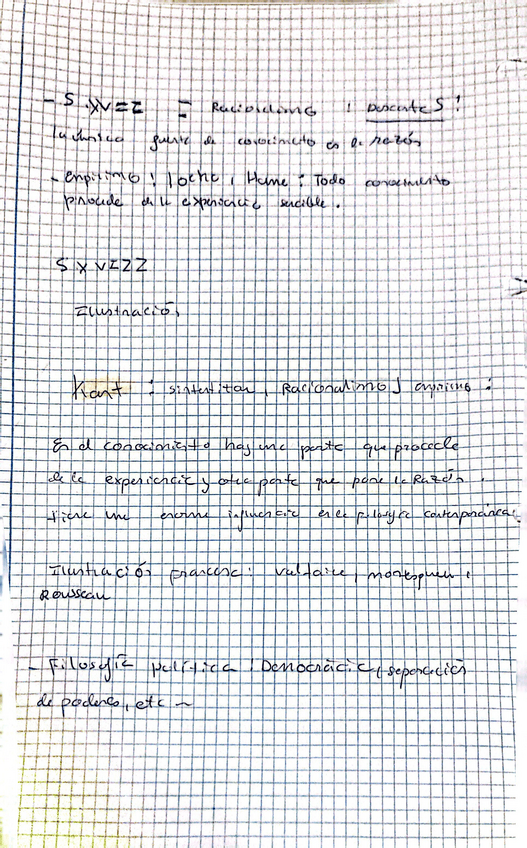 - S. XVII = Racioolimo : Descartes :
La única fuente de conocimeto es la razón
- Empirimo : Locke, Hume : Todo conocimento
procede de la experiencia sencible.
S XVIII
Ilustración
Kant : sintetitar, Racionalimo y empirismo :
En el conocimiento hay una parte que procede
de la experiencia y otra parte que pone la Razón.
tiene una enorme influencia en la filosofía contemporánea.
Ilustración francesa : Voltaire, montesquieu,
Rousseau
- Filosofía política : Democracia, separación
de poderes, etc -